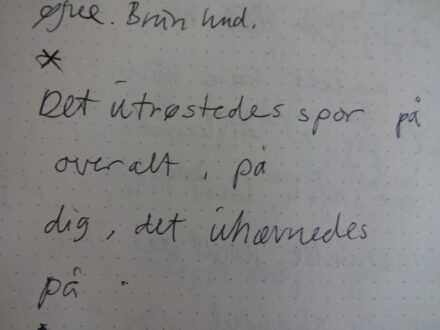 Brun hund.
*
Det utrøstedes spor på
overalt, på
dig, det uhævnedes
på.
*